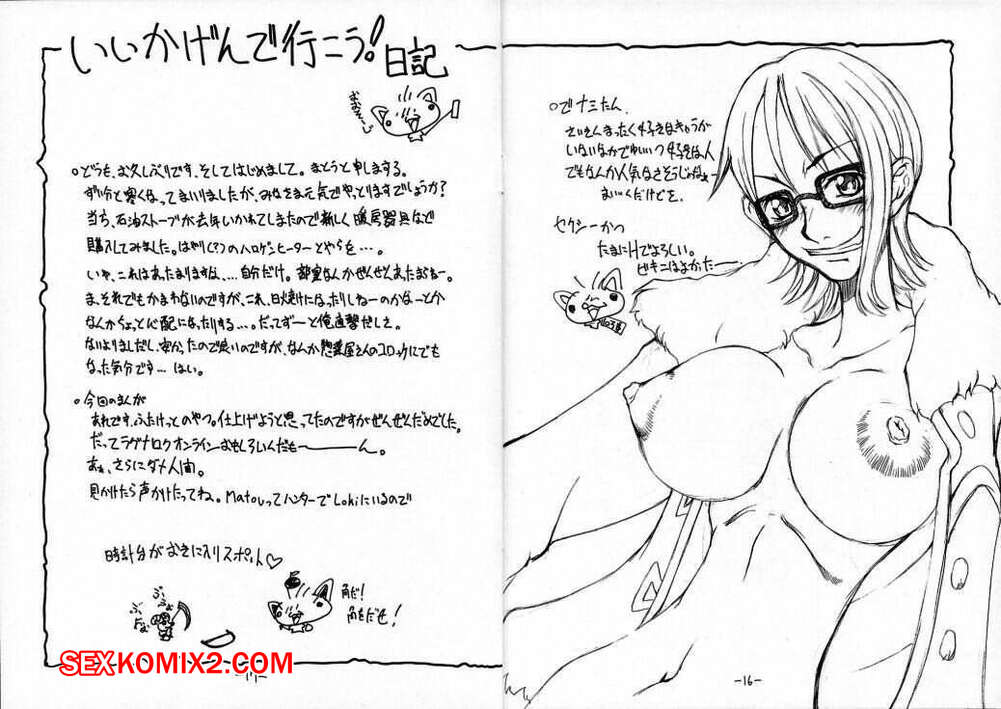 いいかげんで行こう!日記
どうも、お久しぶりです。そしてはじめまして。まとうと申しまする。
ずい分と寒くなってまいりましたが、みなさま元気でやっとりますでしょうか?
当ち、石油ストーブが去年いかれてしまたので新しく暖房器具など
購入してみました。はやり(?)のハロゲンヒーターとやらを…。
いや、これはあたたまりますな、…自分だけ。部屋なんかぜんぜんあったまらねー。
ま、それでもかまわないのですが、これ、日焼けになったりしねーのかなーとか
なんかちょっと心配になったりする…。だってずーと俺直撃だしさ。
ないよりましだし、安かったので良いのですが、なんか惣菜屋さんのコロッケにでも
なった気分です…はい。
今回のまんが
あれです、ふたけっとのやつ。仕上げようと思ってたのですがぜんぜんだめでした。
だってラグナロクオンラインおもしろいんだもーーーん。
あぁ、さらにダメ人間。
見かけたら声かけたってね。MatouってハンターでLokiにいるので
時計台がお気に入りスポット♡
角だ!
角をだせ!
SEXKOMIX2.COM
でナミたん。
さいきんまったく好きなきゃらが
いないなかでゆいいつ好きな人
でもなんか人気なさそうじゃなぁー
まぁいくだけどを。
セクシーかつ
たまにHでよろしい。
ビキニはよかったー
-16-